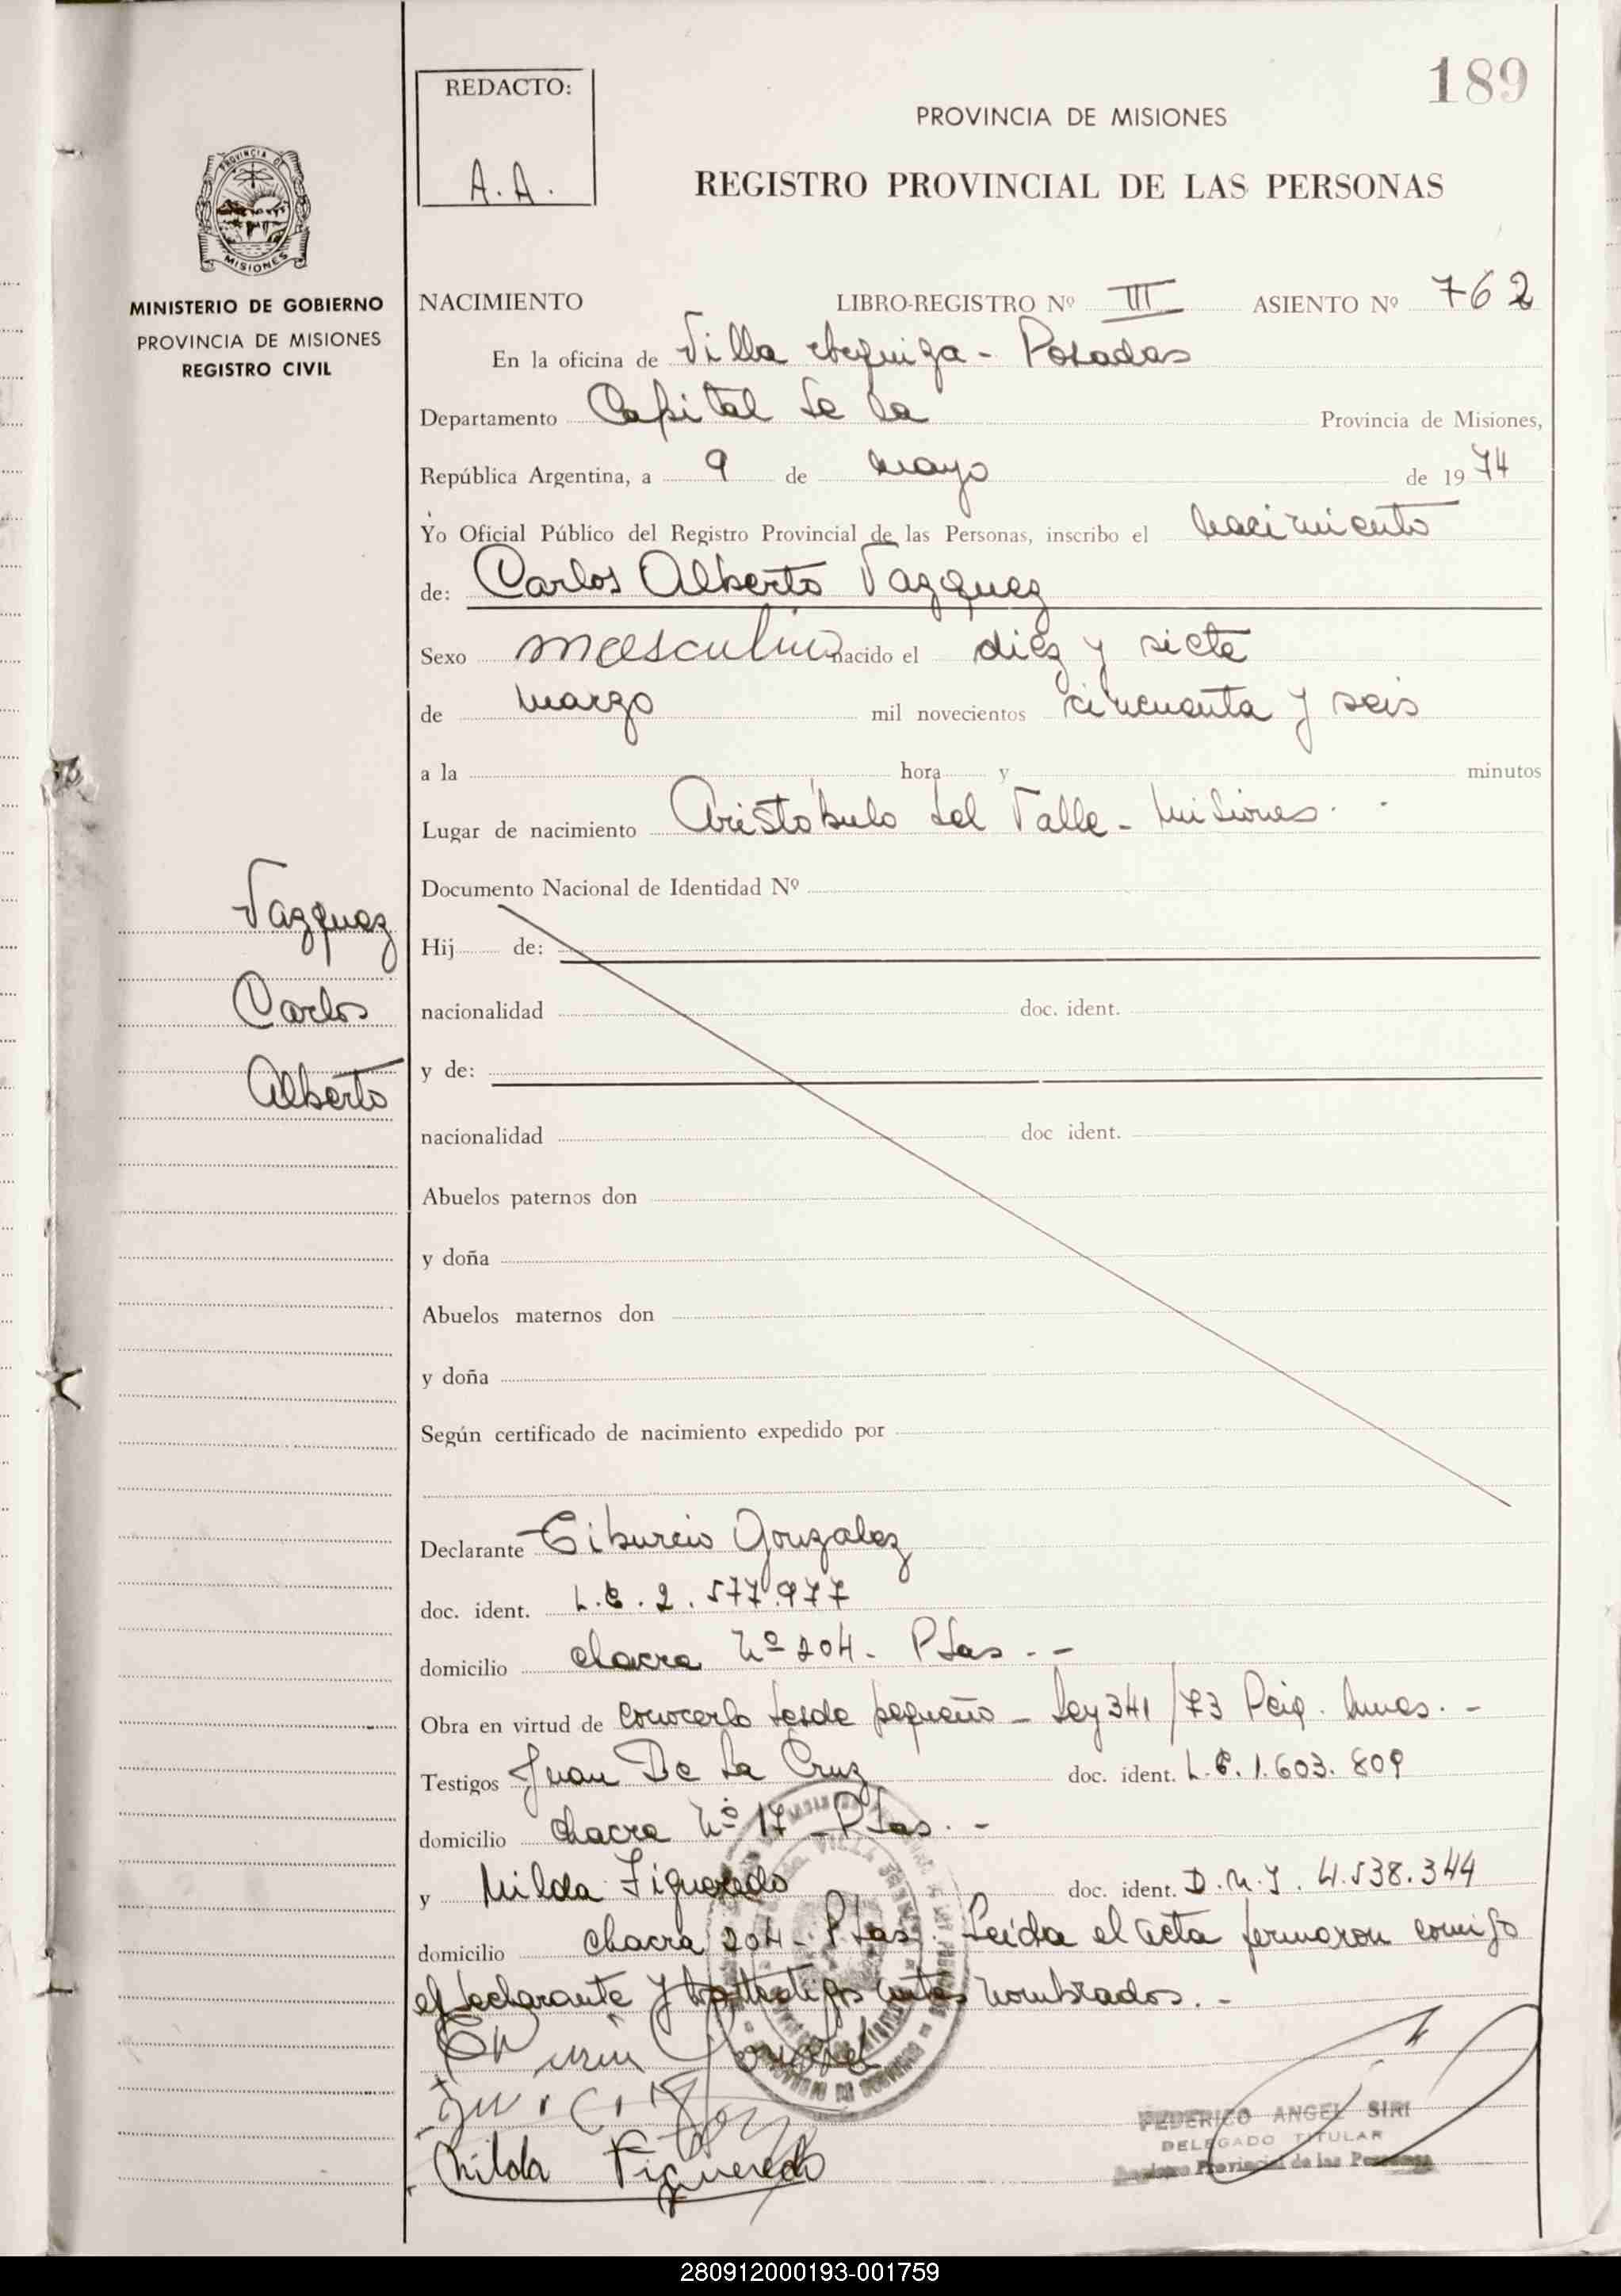 189
REDACTO:
A.A.
PROVINCIA DE MISIONES
REGISTRO PROVINCIAL DE LAS PERSONAS
PROVINCIA DE
MISIONES
MINISTERIO DE GOBIERNO
PROVINCIA DE MISIONES
REGISTRO CIVIL
NACIMIENTO LIBRO-REGISTRO Nº III ASIENTO Nº 762
En la oficina de Villa Urquiza - Posadas
Departamento Capital de la Provincia de Misiones,
República Argentina, a 9 de mayo de 1974
Yo Oficial Público del Registro Provincial de las Personas, inscribo el nacimiento
de: Carlos Alberto Vazquez
Sexo masculino nacido el diez y siete
de marzo mil novecientos cincuenta y seis
a la hora y minutos
Lugar de nacimiento Aristóbulo del Valle - Misiones.
Documento Nacional de Identidad Nº
Vazquez
Carlos
Alberto
Hij de:
nacionalidad doc. ident.
y de:
nacionalidad doc ident.
Abuelos paternos don
y doña
Abuelos maternos don
y doña
Según certificado de nacimiento expedido por
Declarante Tiburcio Gonzalez
doc. ident. L.E. 2.577.977
domicilio chacra Nº 204 - Pdas. -
Obra en virtud de conocerlo desde pequeño - Ley 341/73 - Mnes. -
Testigos Juan De La Cruz doc. ident. L.E. 1.603.809
domicilio chacra Nº 17 - Pdas. -
y Nilda Figueredo doc. ident. D.N.I. 4.538.344
domicilio chacra 204 - Pdas. Leida el acta firmaron comigo
el declarante y los testigos antes nombrados. -
Nilda Figueredo
FEDERICO ANGEL SIRI
DELEGADO TITULAR
Registro Provincial de las Personas
280912000193-001759